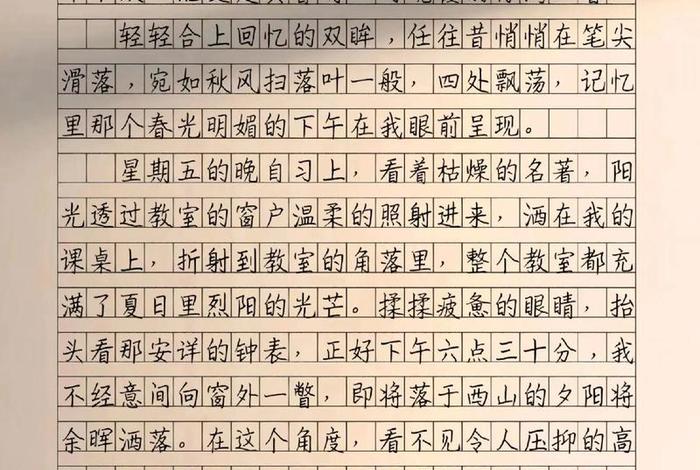 轻轻合上回忆的双眸，任往昔悄悄在笔尖
滑落，宛如秋风扫落叶一般，四处飘荡，记忆
里那个春光明媚的下午在我眼前呈现。
星期五的晚自习上，看着枯燥的名著，阳
光透过教室的窗户温柔的照射进来，洒在我的
课桌上，折射到教室的角落里，整个教室都充
满了夏日里烈阳的光芒。揉揉疲惫的眼睛，抬
头看那安详的钟表，正好下午六点三十分，我
不经意间向窗外一瞥，即将落于西山的夕阳将
余晖洒落。在这个角度，看不见令人压抑的高